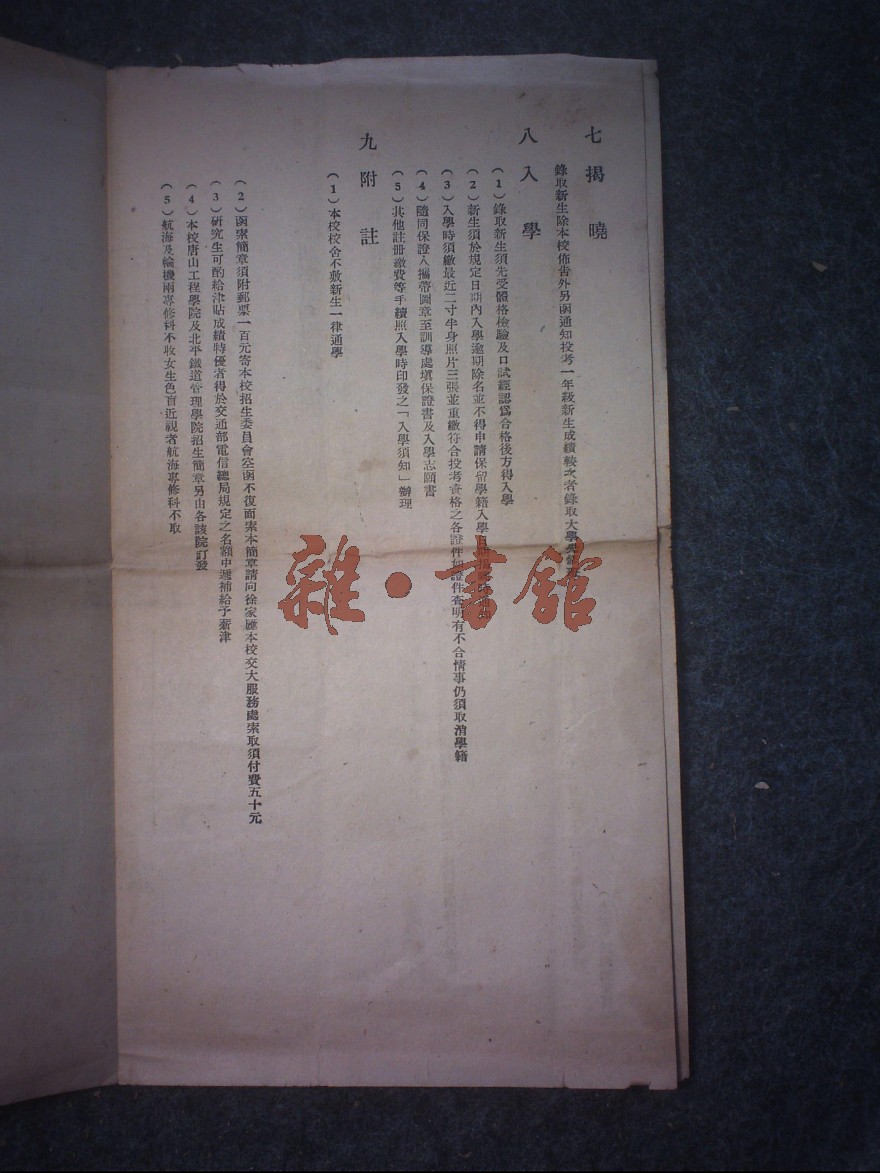 七 揭 曉
錄取新生除本校佈告外另函通知投考一年級新生成績較次者錄取大學先
八 入 學
(1)錄取新生須先受體格檢驗及口試經認爲合格後方得入學
(2)新生須於規定日期內入學逾期除名並不得申請保留學籍入學日期
(3)入學時須繳最近二寸半身照片三張並重繳符合投考資格之各證件如證件查明有不合情事仍須取消學籍
(4)隨同保證人攜帶圖章至訓導處填保證書及入學志願書
(5)其他註冊繳費等手續照入學時印發之「入學須知」辦理
九 附 註
(1)本校校舍不敷新生一律通學
(2)函索簡章須附郵票一百元寄本校招生委員會空函不復面索本簡章請向徐家匯本校交大服務處索取須付費五十元
(3)研究生可酌給津貼成績特優者得於交通部電信總局規定之名額中遞補給予薪津
(4)本校唐山工程學院及北平鐵道管理學院招生簡章另由各該院訂發
(5)航海及輪機兩專修科不收女生色盲近視者航海專修科不取
雜·書館